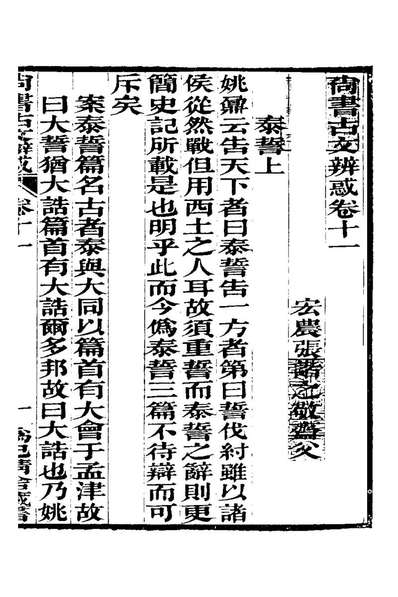 尚書古文辨惑卷十一
宏農張諧之敬齋父
泰誓上
姚鼐云告天下者曰泰誓告一方者第曰誓伐紂雖以諸
侯從然戰但用西土之人耳故須重誓而泰誓之辭則更
簡史記所載是也明乎此而今僞泰誓三篇不待辯而可
斥矣
案泰誓篇名古者泰與大同以篇首有大會于孟津故
曰大誓猶大誥篇首有大誥爾多邦故曰大誥也乃姚
尚書古文辨惑
卷十一
一